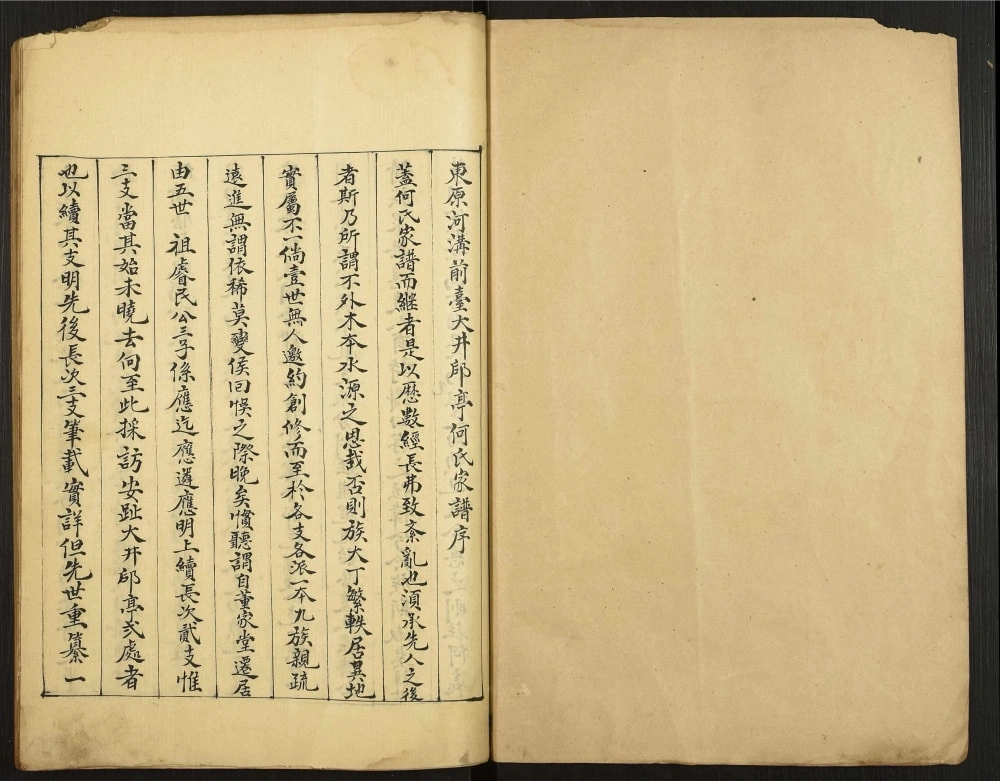 東原河溝前臺大井邱亭何氏家譜序
蓋何氏家譜而継者是以歷數經長弗致紊亂也須承先人之後
者斯乃所謂不外木本水源之思哉否則族大丁繁軼居異地
實屬不一倘壹世無人邀約創修而至於各支各派一本九族親疏
遠進無謂依稀莫變俟回悞之際晚矣慣聽謂自董家堂遷居
由五世 祖睿民公三子係應迄應選應明上續長次貳支惟
三支當其始未曉去向至此採訪安趾大井邱亭弍處者
也以續其支明先後長次三支筆載實詳但先世重纂一